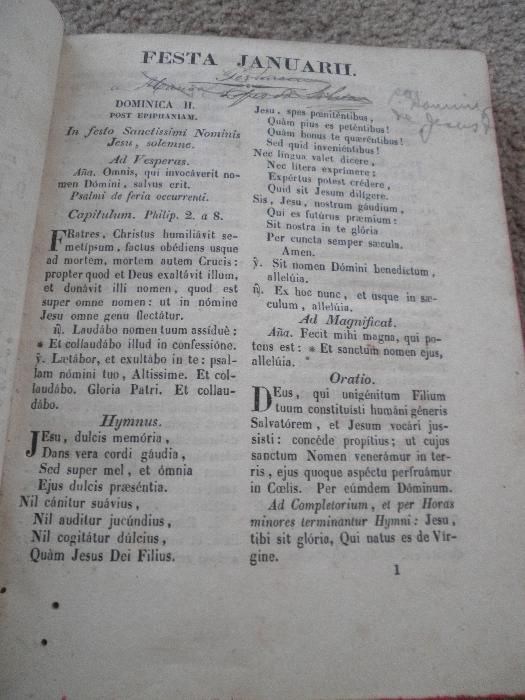 FESTA JANUARII.
DOMINICA II.
POST EPIPHANIAM.
In festo Sanctissimi Nominis
Jesu, solemne.
Ad Vesperas.
Aña. Omnis, qui invocáverit no-
men Dómini, salvus erit.
Psalmi de feria occurrenti.
Capitulum. Philip. 2. a 8.
FRatres, Christus humiliávit se-
metípsum, factus obédiens usque
ad mortem, mortem autem Crucis:
propter quod et Deus exaltávit illum,
et donávit illi nomen, quod est
super omne nomen: ut in nómine
Jesu omne genu flectátur.
℟. Laudábo nomen tuum assiduè:
* Et collaudábo illud in confessióne.
℣. Lætábor, et exultábo in te: psal-
lam nómini tuo, Altissime. Et col-
laudábo. Gloria Patri. Et collau-
dábo.
Hymnus.
JEsu, dulcis memória,
Dans vera cordi gáudia,
Sed super mel, et ómnia
Ejus dulcis præséntia.
Nil cánitur suávius,
Nil auditur jucúndius,
Nil cogitátur dúlcius,
Quàm Jesus Dei Filius.
Jesu, spes pœniténtibus,
Quàm pius es peténtibus!
Quàm bonus te quæréntibus!
Sed quid inveniéntibus!
Nec lingua valet dícere,
Nec lítera exprímere:
Expértus potest crédere,
Quid sit Jesum dilígere.
Sis, Jesu, nostrum gáudium,
Qui es futúrus præmium:
Sit nostra in te glória
Per cuncta semper sæcula.
Amen.
℣. Sit nomen Dómini benedictum,
allelúia.
℟. Ex hoc nunc, et usque in sæ-
culum, allelúia.
Ad Magnificat.
Aña. Fecit mihi magna, qui po-
tens est: * Et sanctum nomen ejus,
allelúia.
Oratio.
DEus, qui unigénitum Filium
tuum constituísti humáni géneris
Salvatórem, et Jesum vocári jus-
sisti: concéde propítius; ut cujus
sanctum Nomen venerámur in ter-
ris, ejus quoque aspéctu perfruámur
in Cœlis. Per eúmdem Dóminum.
Ad Completorium, et per Horas
minores terminantur Hymni: Jesu,
tibi sit glória, Qui natus es de Vir-
gine.
1